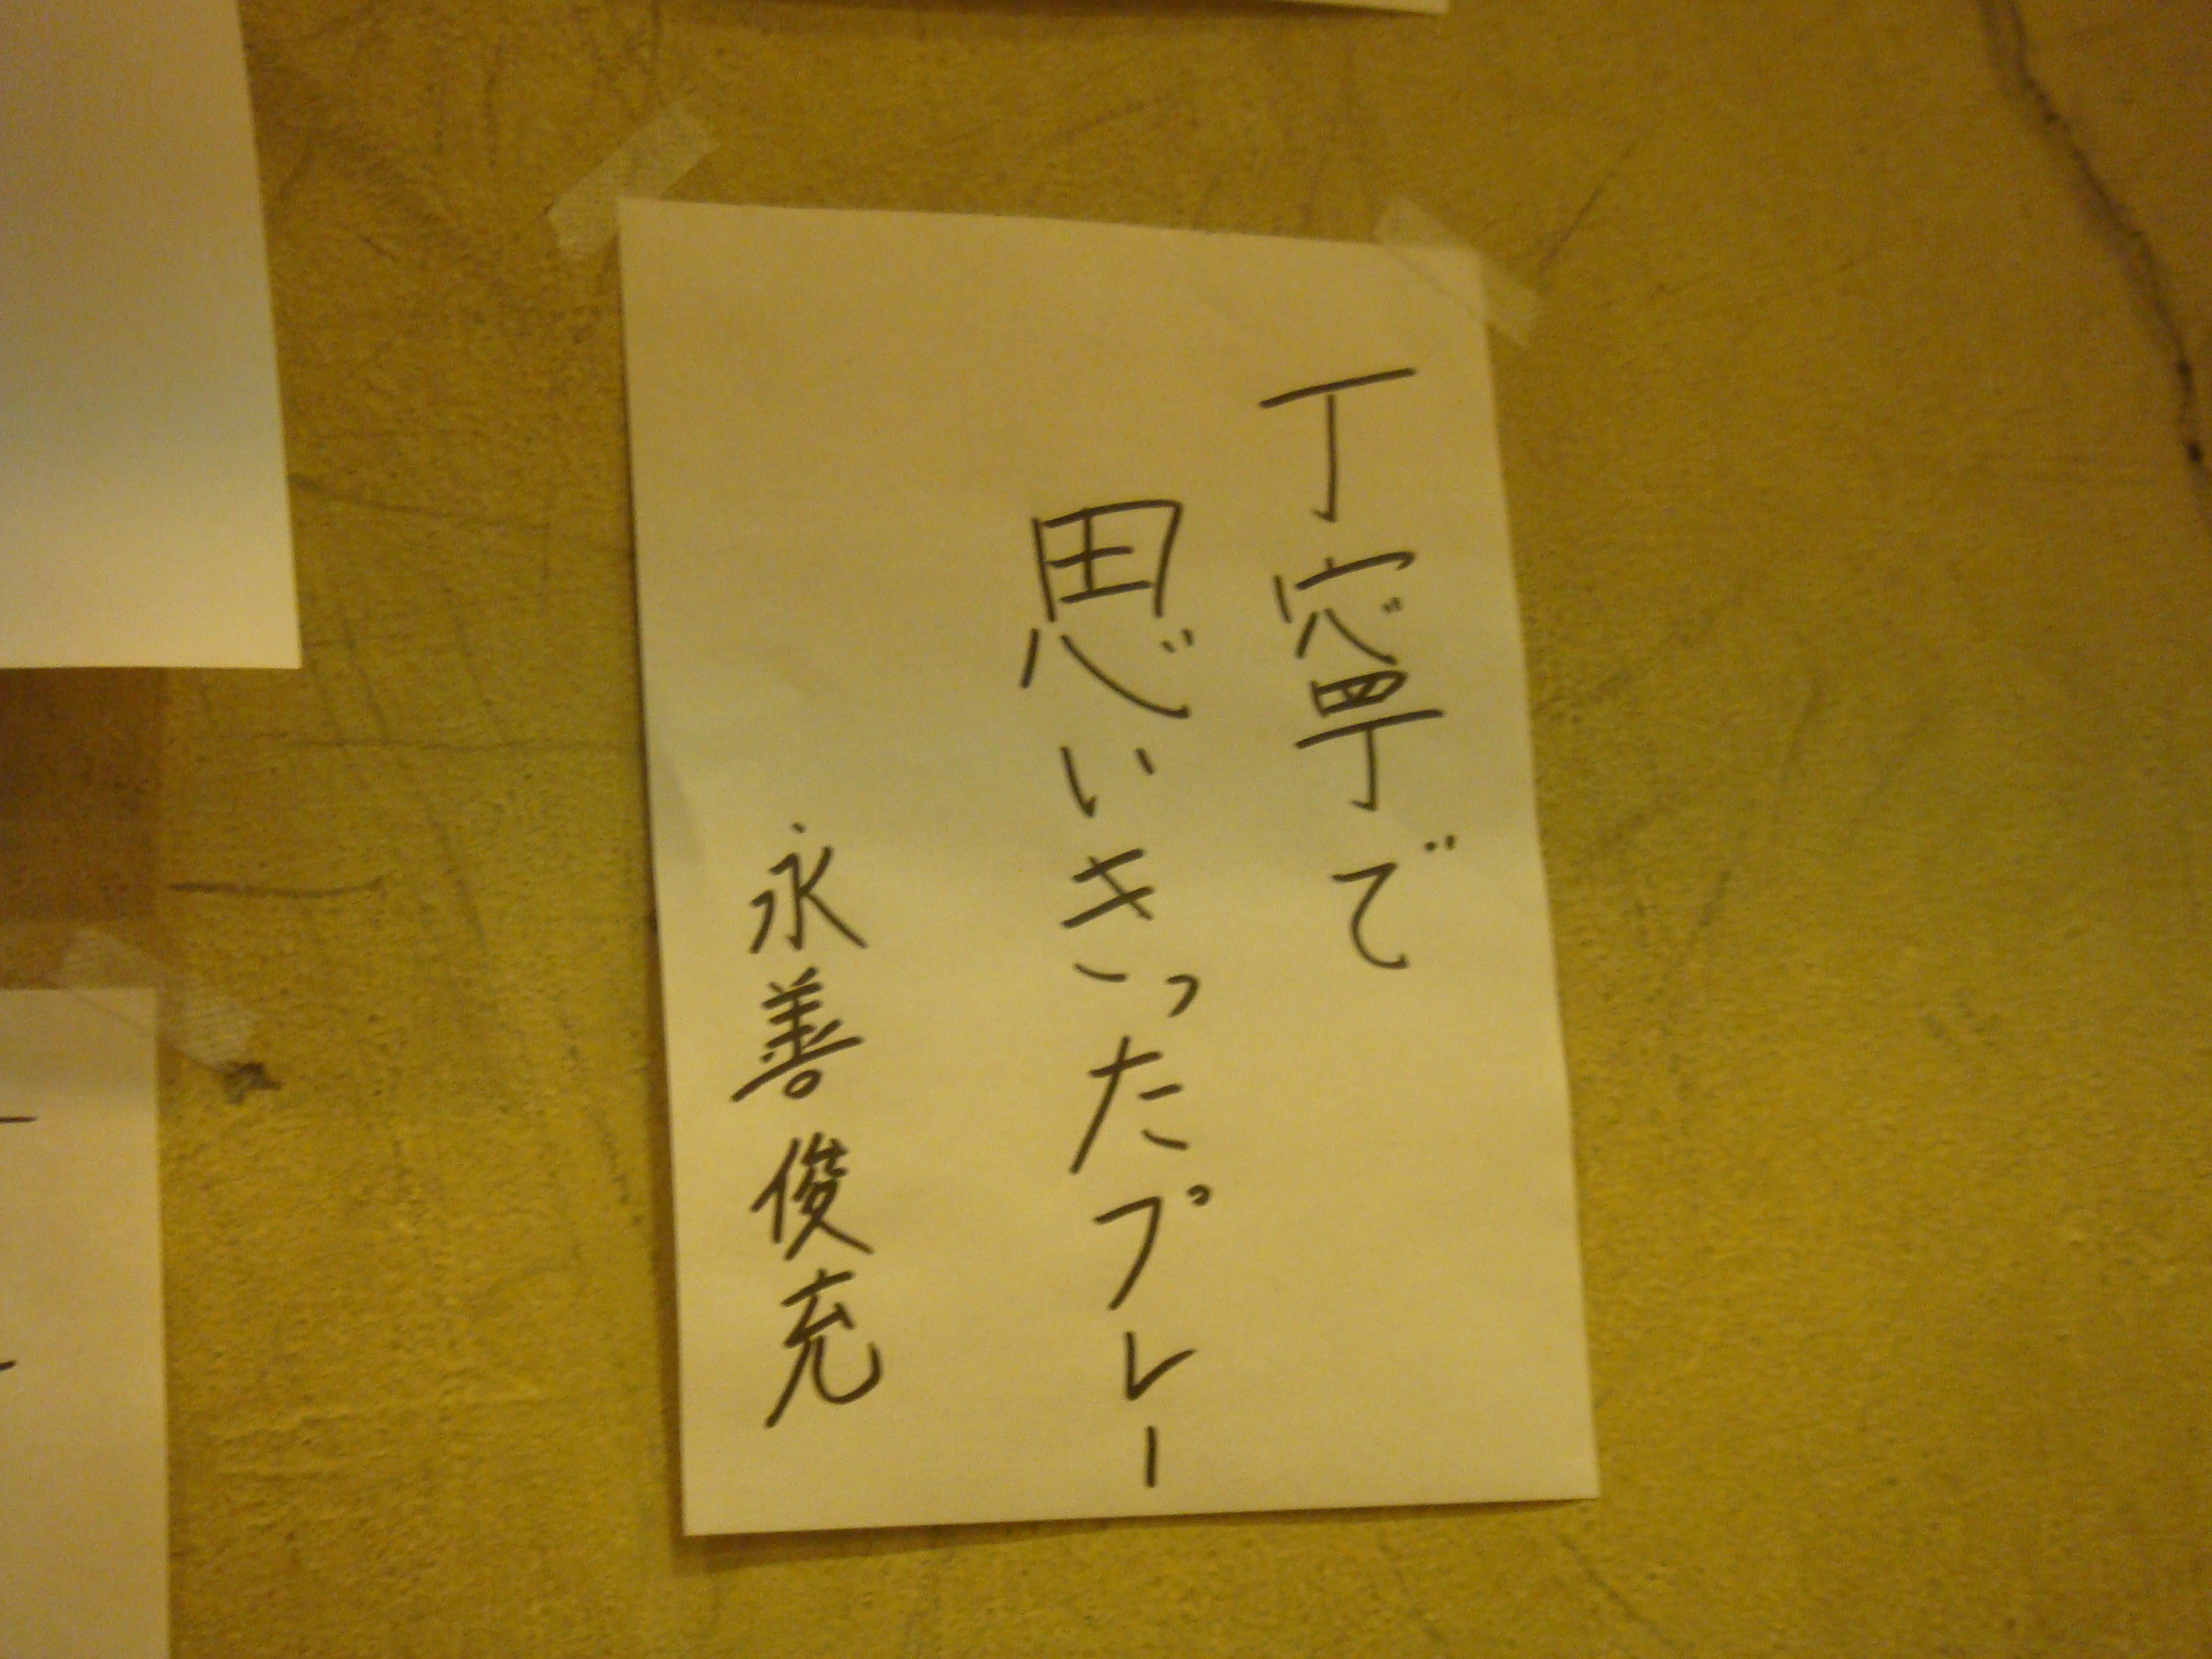 丁寧で
思いきったプレー
永善俊充